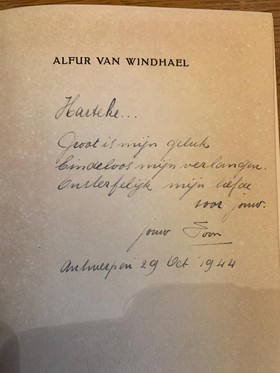 ALFUR VAN WINDHAEL
Harteke...
Groot is mijn geluk
Eindeloos mijn verlangen.
Onsterfelijk mijn liefde
voor jouw.
jouw Toon
Antwerpen 29 Oct 1944